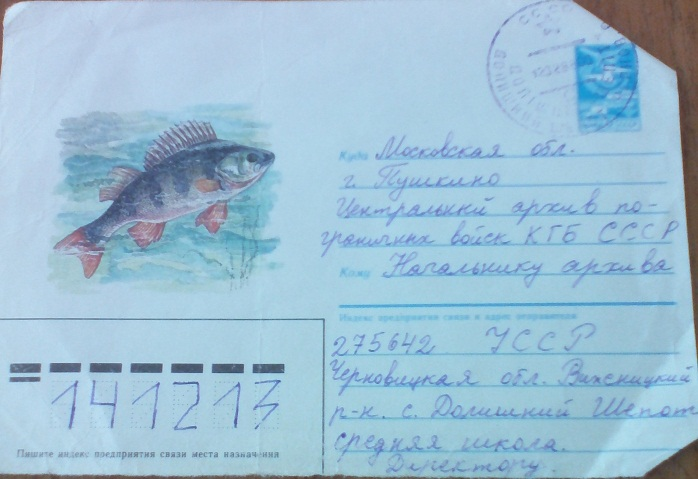 СССР
Куда Московская обл.
г. Пушкино
Центральний архив по-
граничних войск КГБ СССР
Кому Начальнику архива
Индекс предприятия связи и адрес отправителя
275642 УССР
Черновицкая обл. Вижницкий
р-н. с. Долишний Шепот
средняя школа.
Директору.
141213
Пишите индекс предприятия связи места назначения